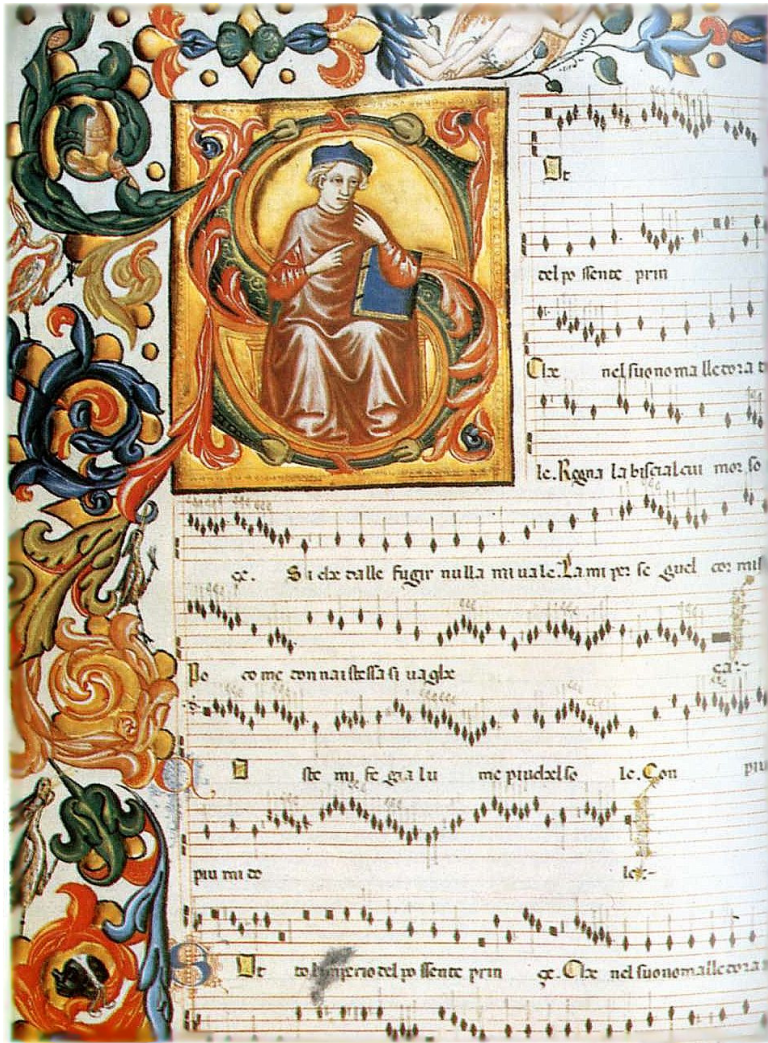 S Ot
del po ssente prin
Che nel suo no ma lle dora
le. Regna la biscia l cui mor so
ce. Si che dalle fugir nulla mi uale. La mi per se guel cor
Po co me don na i stessa si ua ghe ca:-
ste mi fe gia lu me piu chel so le. Con piu
piu mi do le:-
S Ot to limperio del po ssente prin ce. Che nel suo no ma lle dora